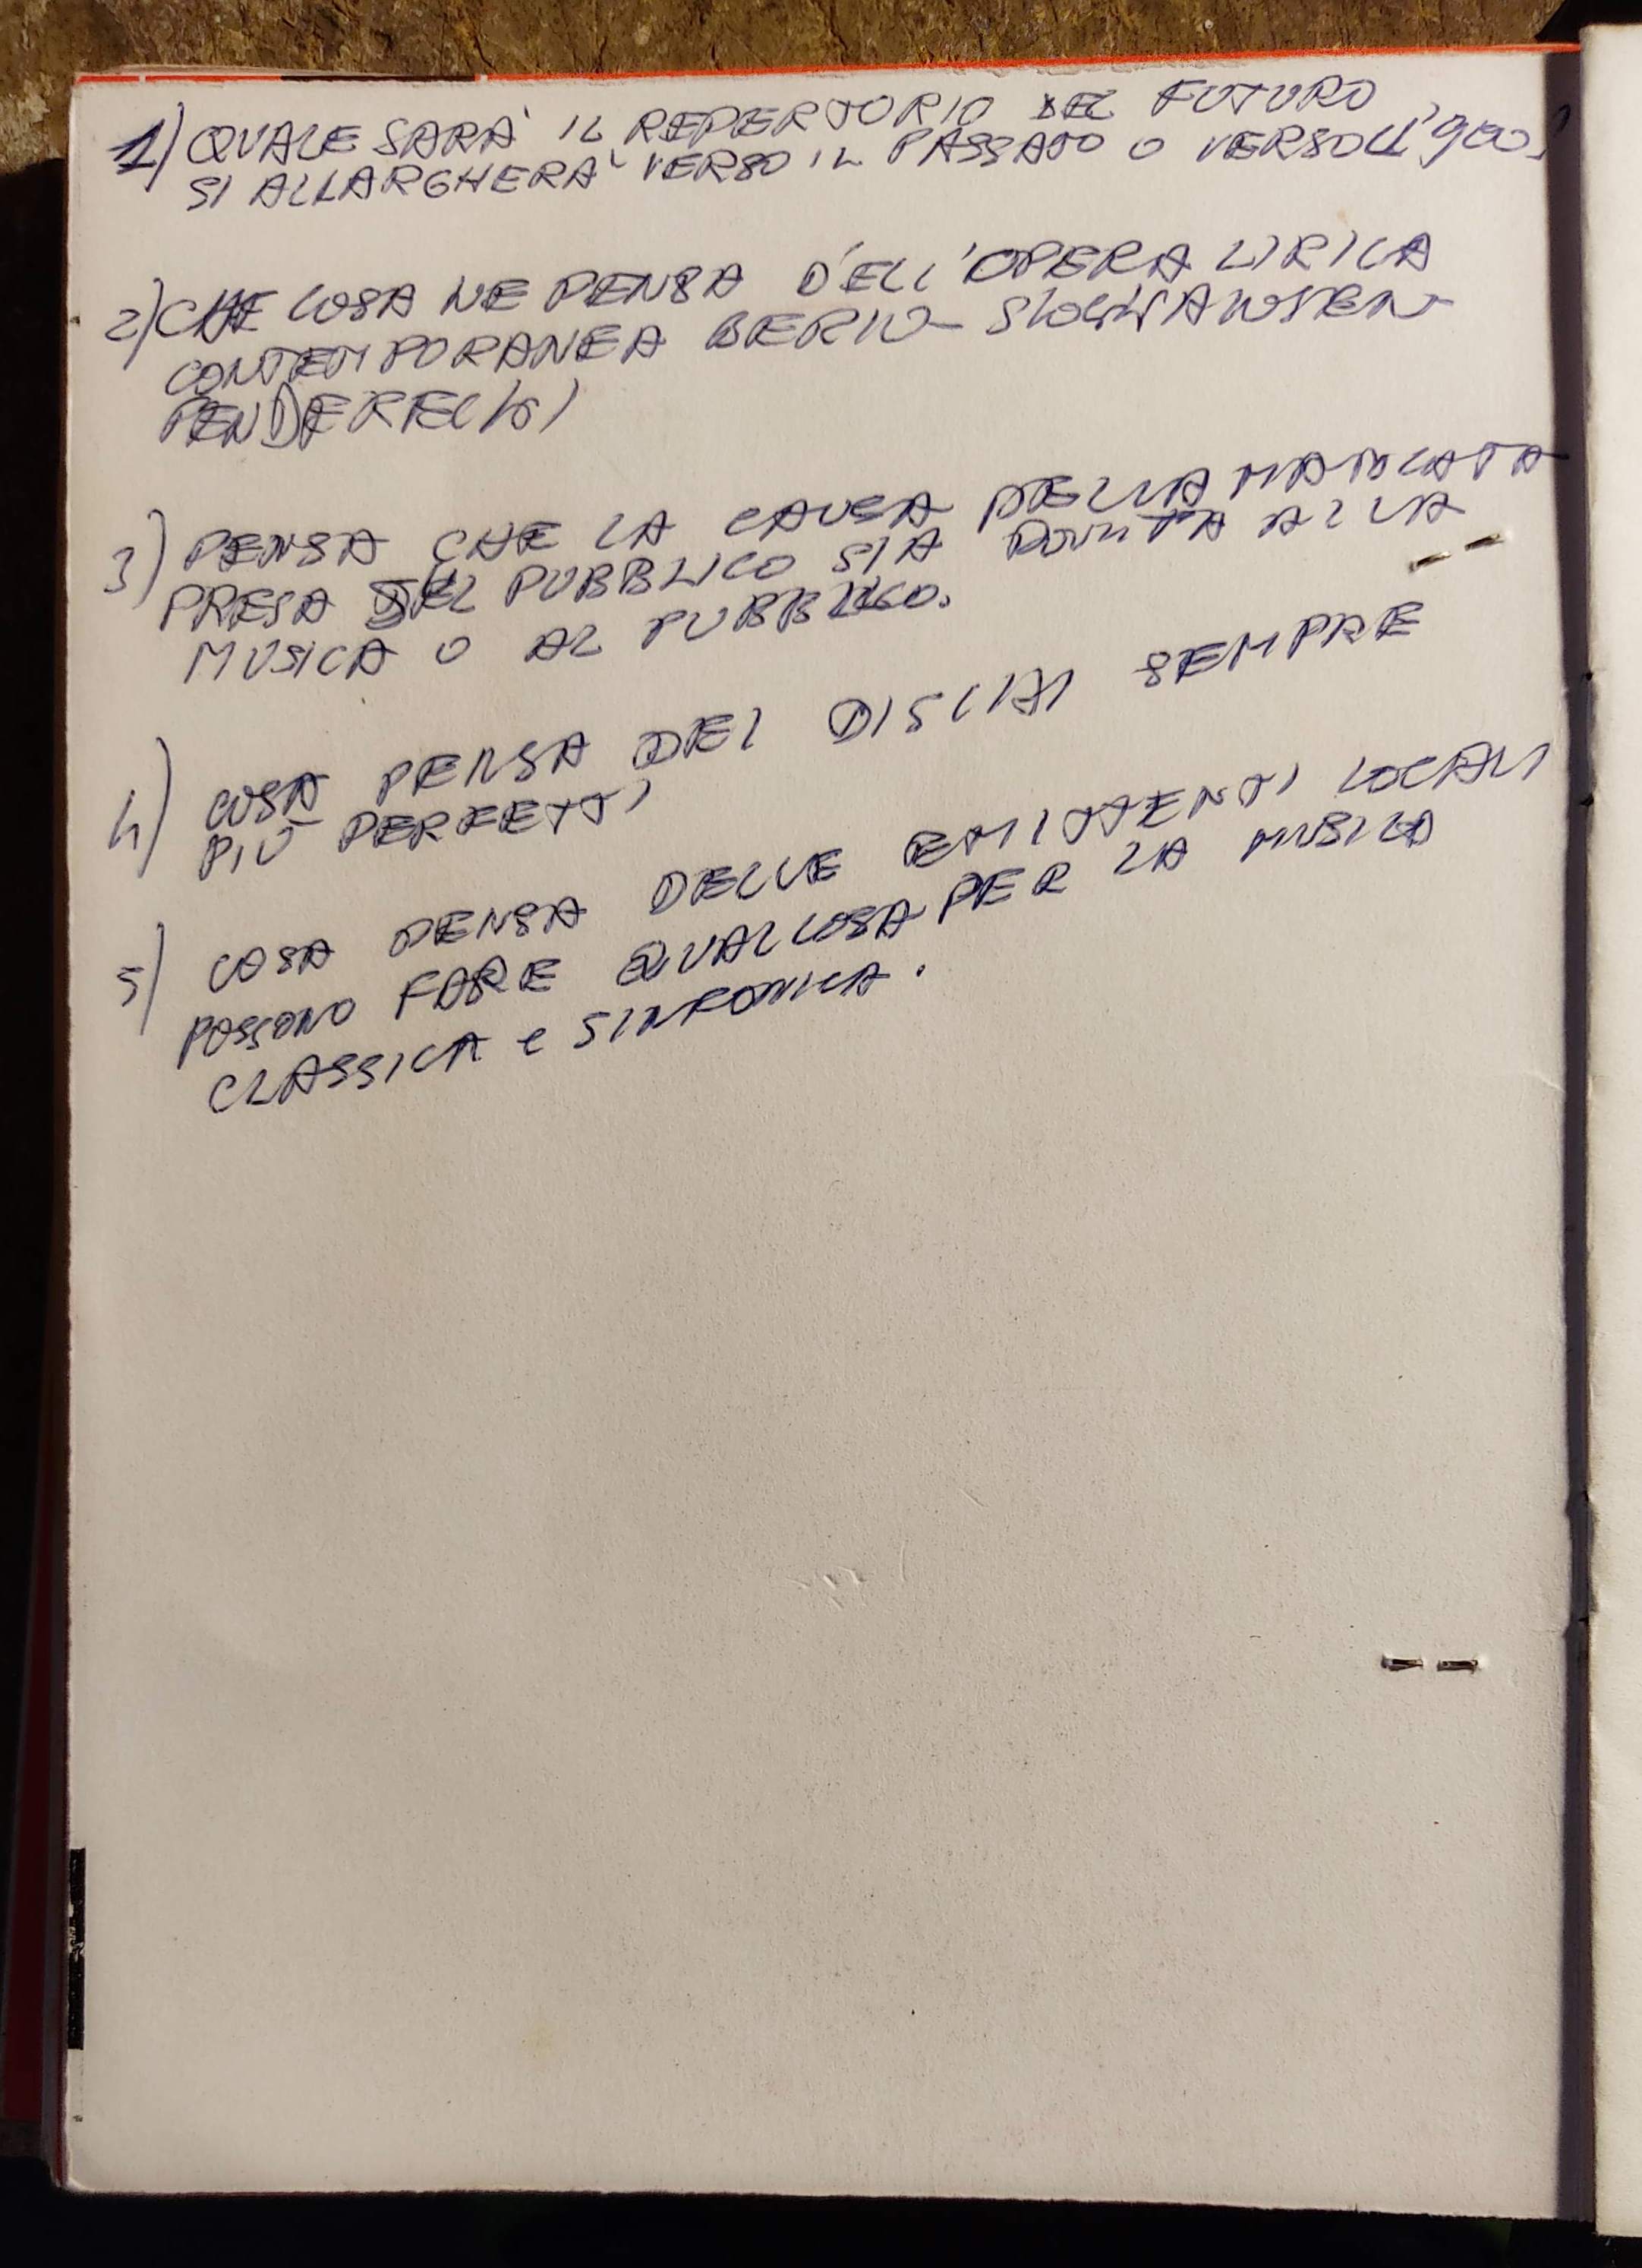 1) QUALE SARA' IL REPERTORIO DEL FUTURO
SI ALLARGHERA' VERSO IL PASSATO O VERSO IL '900
2) CHE COSA NE PENSA DELL'OPERA LIRICA
CONTEMPORANEA BERIO - STOCKHAWSEN
PENDERECKI
3) PENSA CHE LA CAUSA DELLA MANCATA
PRESA DEL PUBBLICO SIA DOVUTA ALLA
MUSICA O AL PUBBLICO.
4) COSA PENSA DEI DISCHI SEMPRE
PIÙ PERFETTI
5) COSA PENSA DELLE EMITTENTI LOCALI
POSSONO FARE QUALCOSA PER LA MUSICA
CLASSICA e SINFONICA.